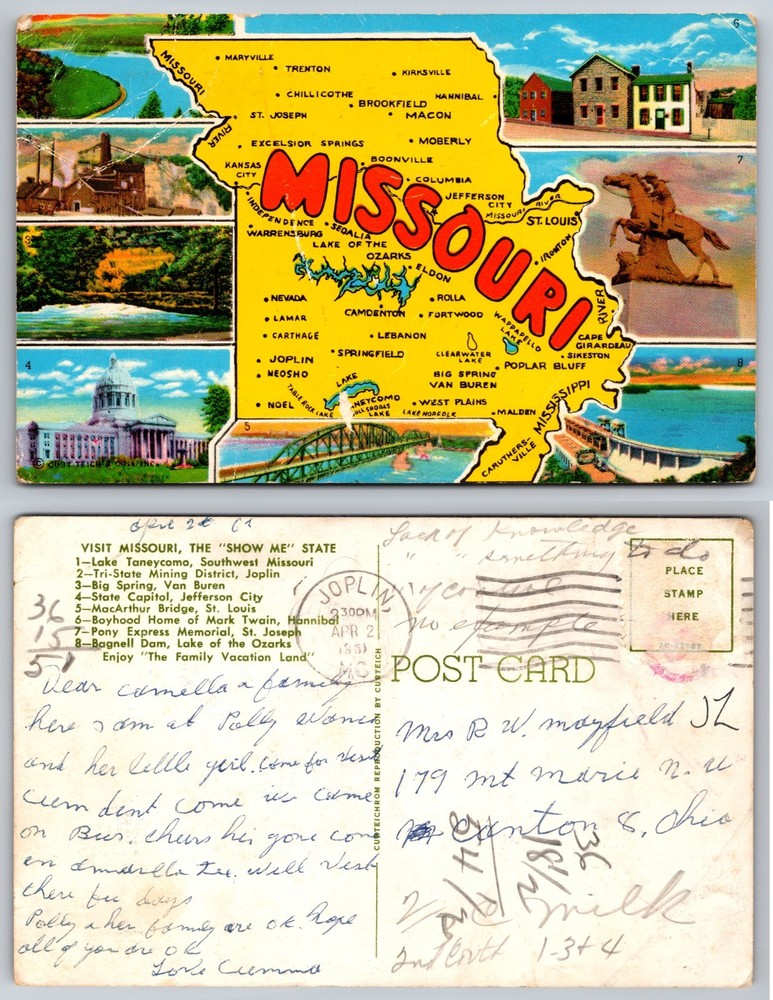 6
MISSOURI
RIVER
MARYVILLE
TRENTON
KIRKSVILLE
CHILLICOTHE
BROOKFIELD
HANNIBAL
ST. JOSEPH
MACON
EXCELSIOR SPRINGS
MOBERLY
KANSAS CITY
BOONVILLE
COLUMBIA
7
MISSOURI
JEFFERSON CITY
MISSOURI RIVER
ST. LOUIS
INDEPENDENCE
WARRENSBURG
SEDALIA
LAKE OF THE OZARKS
ELDON
IRONTON
3
NEVADA
CAMDENTON
ROLLA
FORTWOOD
WAPPAPELLO LAKE
RIVER
LAMAR
CARTHAGE
LEBANON
CAPE GIRARDEAU
SIKESTON
JOPLIN
SPRINGFIELD
CLEARWATER LAKE
POPLAR BLUFF
4
8
NEOSHO
BIG SPRING
VAN BUREN
MISSISSIPPI
NOEL
TABLE ROCK LAKE
LAKE
NEYCOMO
LAKE
WEST PLAINS
LAKE NORFOLK
MALDEN
CARUTHERS-VILLE
5
© CURT TEICH & CO., INC.
VISIT MISSOURI, THE "SHOW ME" STATE
1—Lake Taneycomo, Southwest Missouri
2—Tri-State Mining District, Joplin
3—Big Spring, Van Buren
4—State Capitol, Jefferson City
5—MacArthur Bridge, St. Louis
6—Boyhood Home of Mark Twain, Hannibal
7—Pony Express Memorial, St. Joseph
8—Bagnell Dam, Lake of the Ozarks
Enjoy "The Family Vacation Land"
36
15
51
Dear Camella & family
here I am at Polly
and her little girl. Come for visit
dent come we came
on Bus. gone
on Amarilla Tex. Will Visit
there few days
Polly & her family are ok. hope
all of you are ok
Love
JOPLIN,
230PM
APR 2
1961
MO
CURTEICHROM REPRODUCTION BY CURTEICH
Lack of Knowledge
" " something to do
no example
PLACE
STAMP
HERE
POST CARD
Mrs R. W. Mayfield
179 Mt Marie N. W
Canton 8, Ohio
36
18 1/2
54 1/2
2 Milk
1-3+4